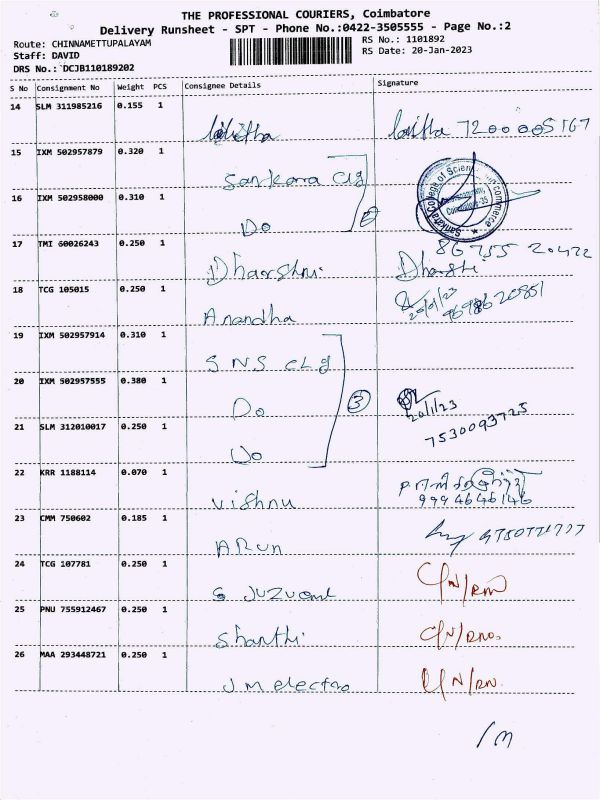 THE PROFESSIONAL COURIERS, Coimbatore
Delivery Runsheet - SPT - Phone No.:0422-3505555 - Page No.:2
Route: CHINNAMETTUPALAYAM
RS No.: 1101892
Staff: DAVID
RS Date: 20-Jan-2023
DRS No.: DCJB110189202
S No Consignment No Weight PCS Consignee Details Signature
14 SLM 311985216 0.155 1
15 IXM 502957879 0.320 1
Sankara Clg
16 IXM 502958000 0.310 1
Do
2
Sankara College of Science
17 TMI 60026243 0.250 1
Dharshni
86755 20422
18 TCG 105015 0.250 1
Anandha
20/1/23
19 IXM 502957914 0.310 1
SNS CLg
20 IXM 502957555 0.380 1
Do
3
20/1/23
21 SLM 312010017 0.250 1
Do
7530093725
22 KRR 1188114 0.070 1
Vishnu
9994646146
23 CMM 750602 0.185 1
ARUN
24 TCG 107781 0.250 1
25 PNU 755912467 0.250 1
Shanthi
26 MAA 293448721 0.250 1
J.M electro